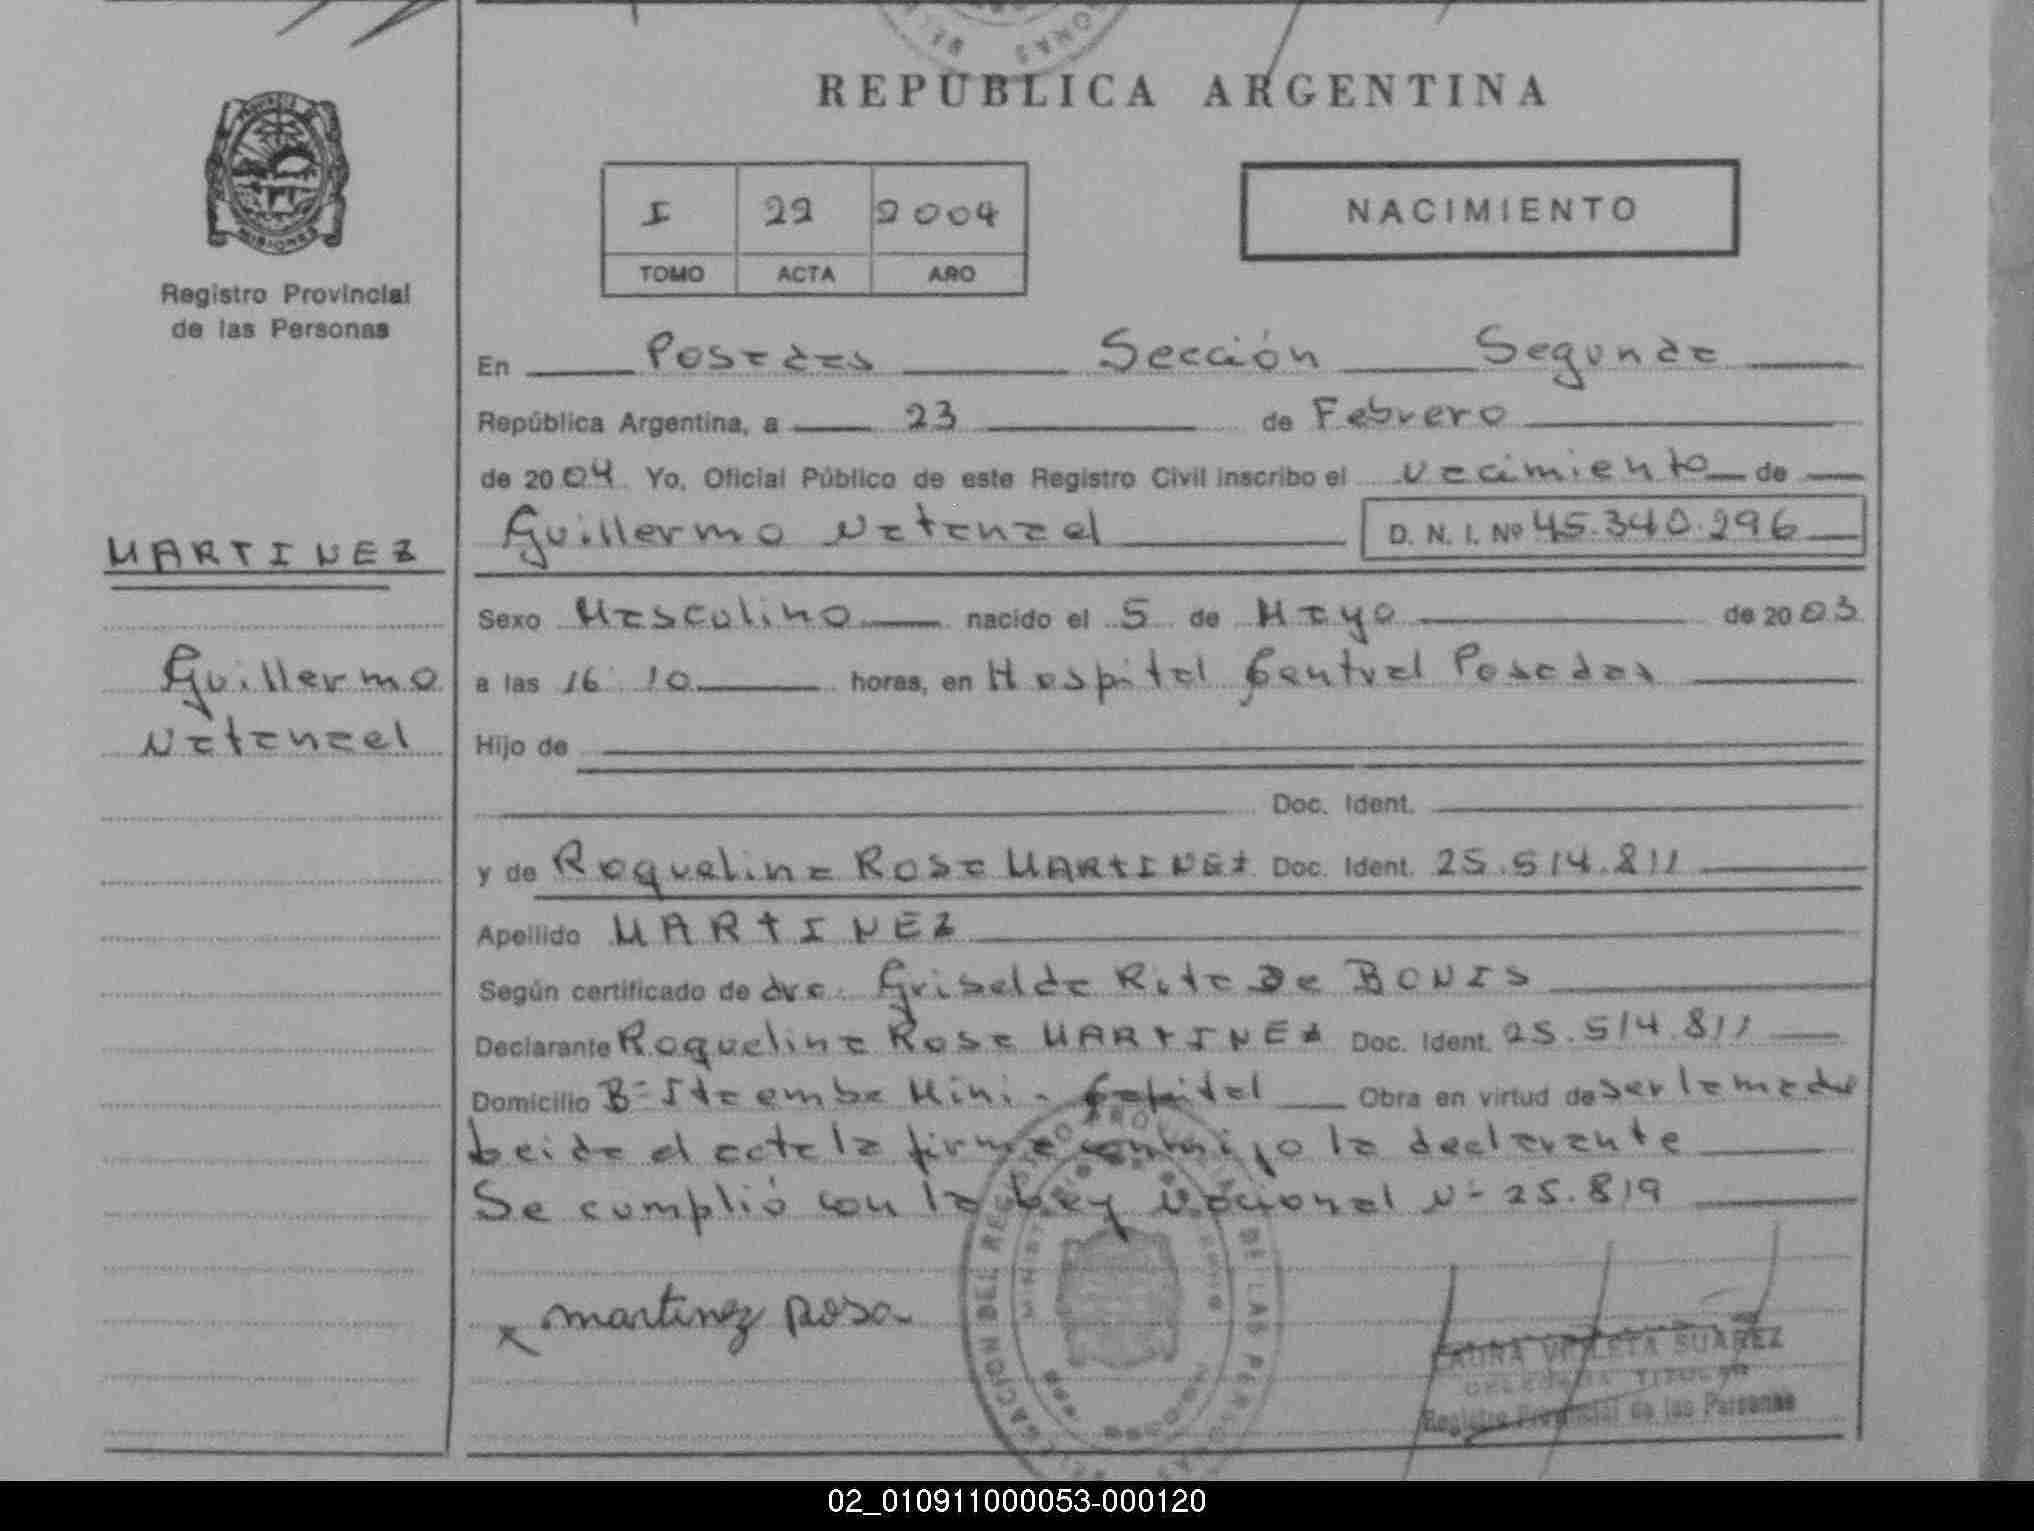 REPUBLICA ARGENTINA
MISIONES
Registro Provincial
de las Personas
I 22 2004
TOMO ACTA AÑO
NACIMIENTO
En Posadas Sección Segunda
República Argentina, a 23 de Febrero
de 2004 Yo, Oficial Público de este Registro Civil inscribo el nacimiento de
Guillermo Natanael D. N. I. Nº 45.340.296
MARTINEZ
Guillermo
Natanael
Sexo Masculino nacido el 5 de Mayo de 2003
a las 16:10 horas, en Hospital Central Posadas
Hijo de
Doc. Ident.
y de Roquelina Rosa MARTINEZ Doc. Ident. 25.514.811
Apellido MARTINEZ
Según certificado de dra. Griselda Rita De BONIS
Declarante Roquelina Rosa MARTINEZ Doc. Ident. 25.514.811
Domicilio Bº Itaembe Mini - Capital Obra en virtud de ser la madre
Leida el acta la firma conmigo la declarante
Se cumplió con la Ley Nacional Nº 25.819
x martinez Rosa
DELEGACION DEL REGISTRO PROVINCIAL DE LAS PERSONAS
VIOLETA SUAREZ
DELEGADA TITULAR
Registro Provincial de las Personas
02_010911000053-000120